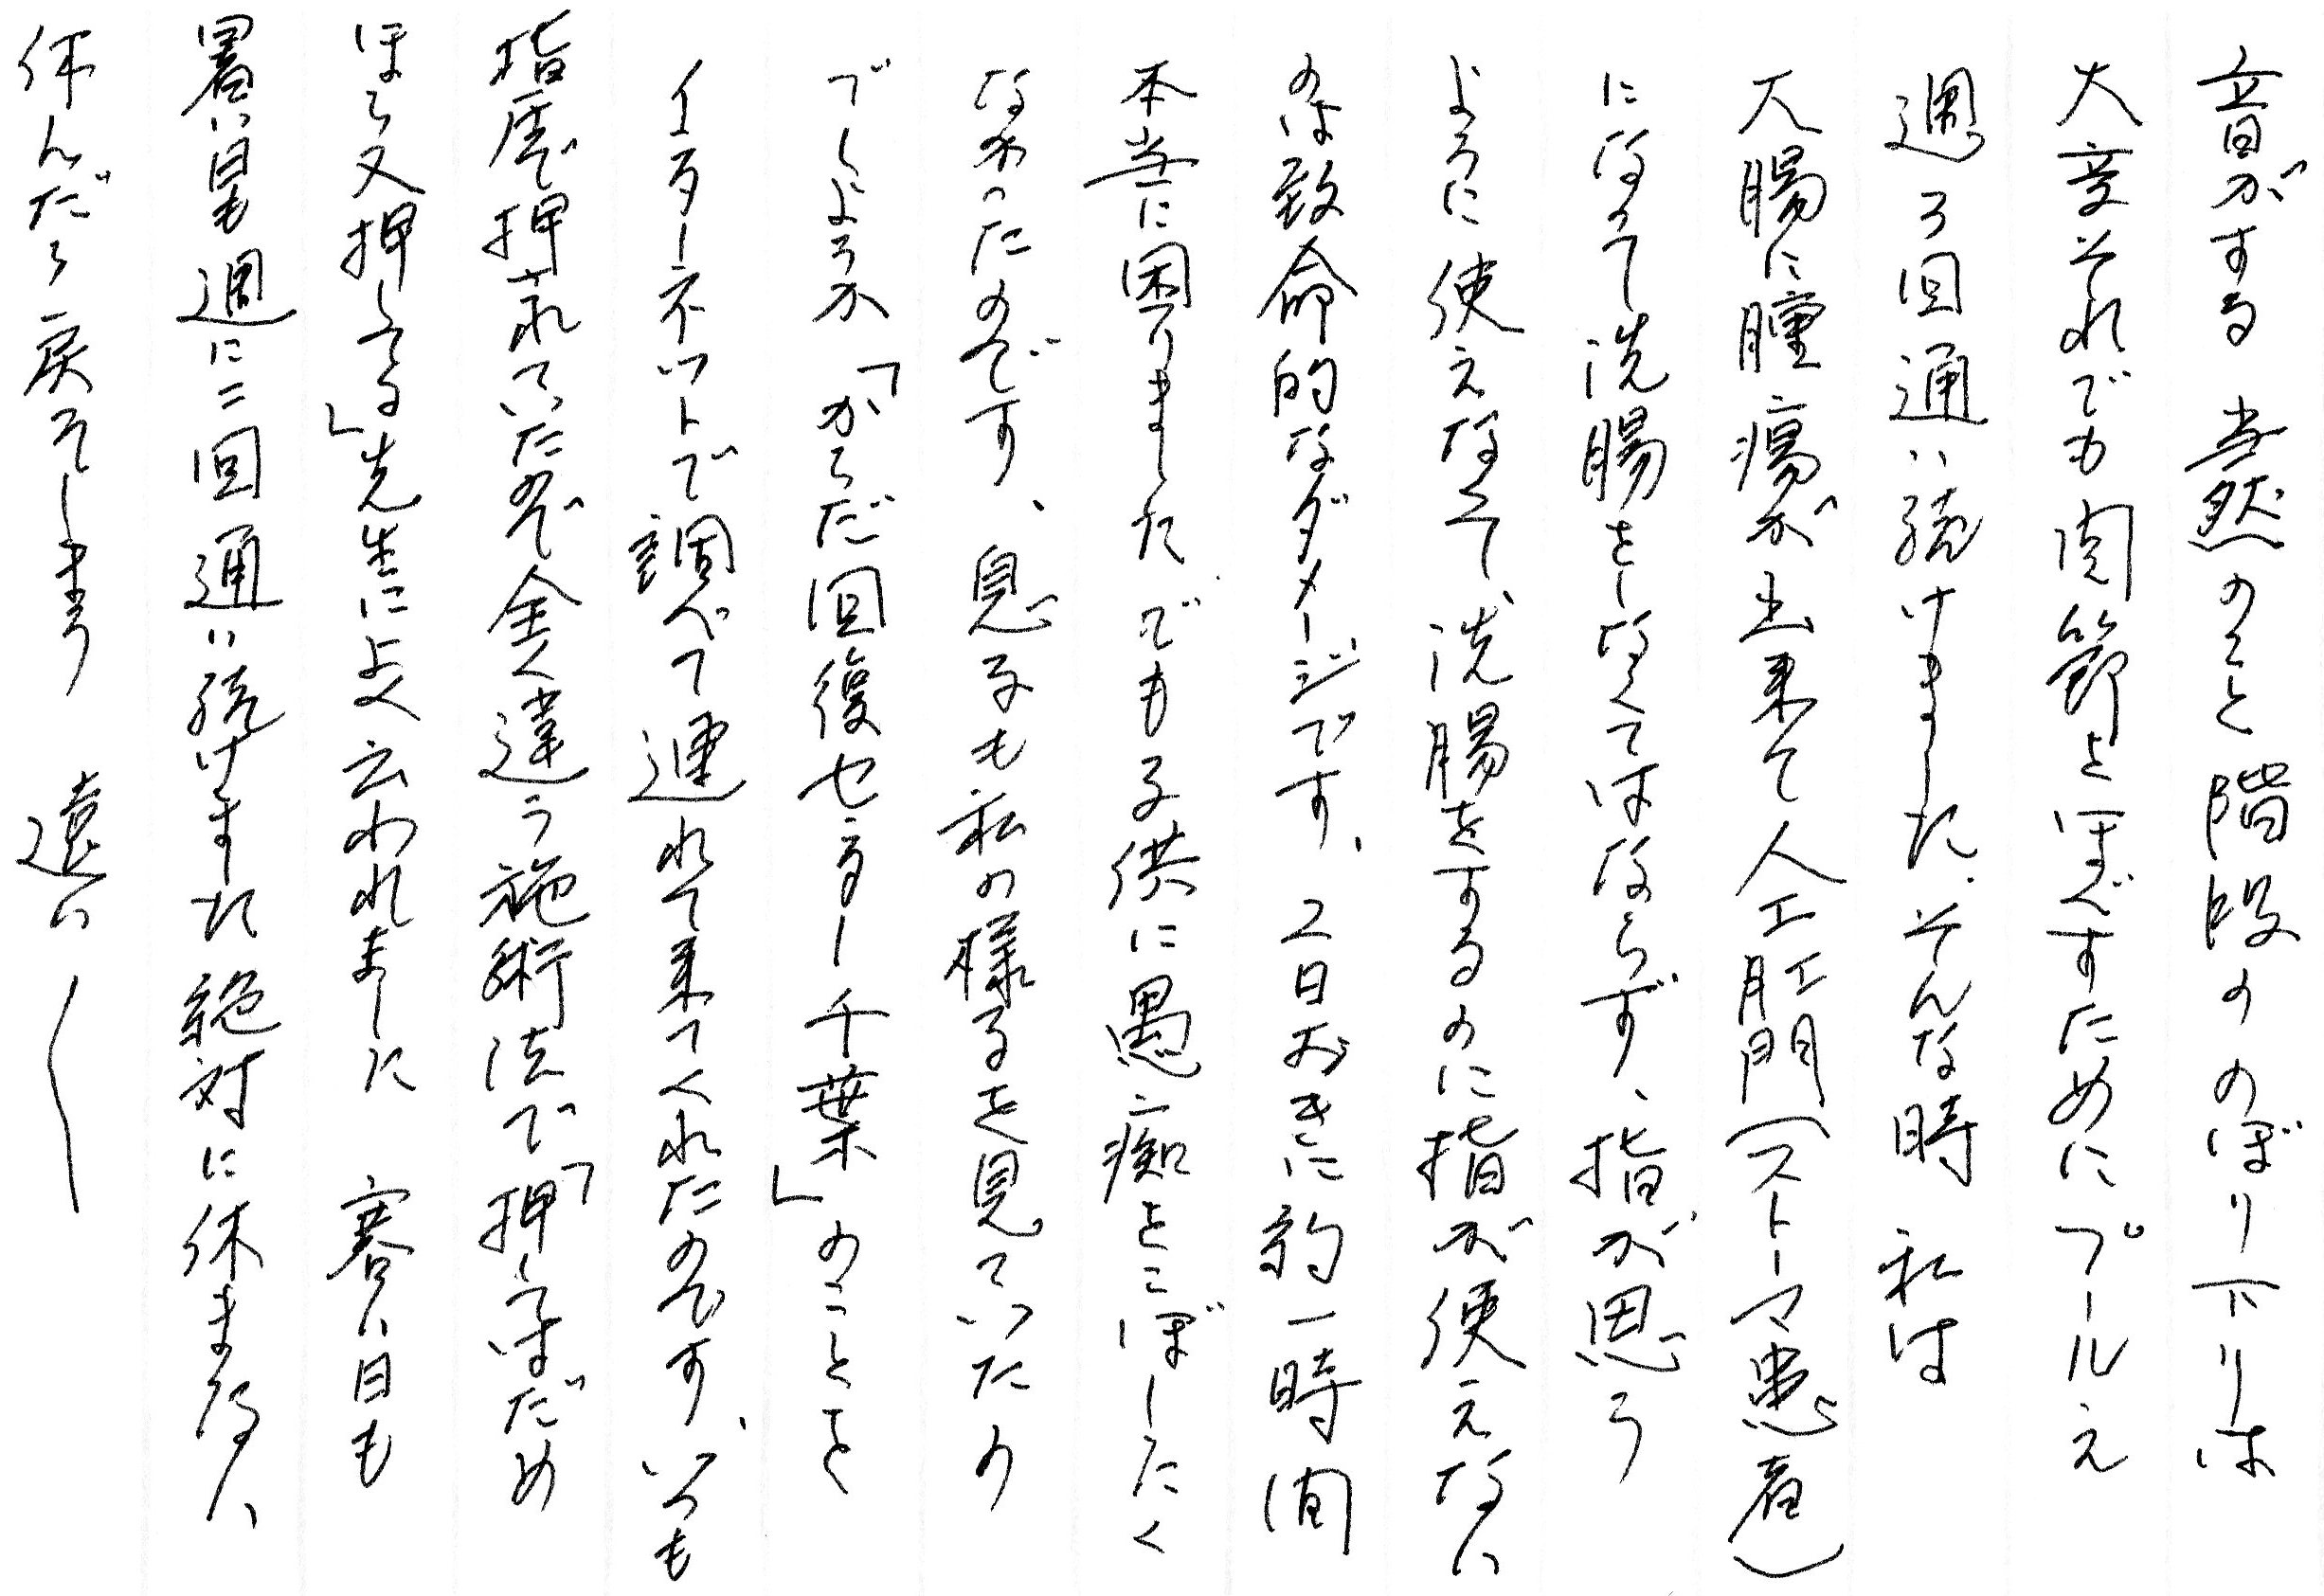 音がする 当然のこと階段ののぼり下りは
大変それでも関節をほぐすためにプールえ
週3回通い続けました、そんな時 私は
大腸に腫瘍が出来て人工肛門(ストーマ患者)
になって洗腸をしなくてはならず、指が思う
ように使えなくて、洗腸をするのに指が使えない
のは致命的なダメージです、2日おきに約一時間
本当に困りました、でも子供に愚痴をこぼしたく
なかったのです、息子も私の様子を見ていたの
でしょうか「からだ回復センター千葉」のことを
インターネットで調べて連れて来てくれたのです、いつも
指圧で押されていたので全く違う施術法で「押してはだめ
ほら又押してる」先生によく云われました 寒い日も
暑い日も週に二回通い続けました 絶対に休まない
休んだら戻ってしまう 遠い〜